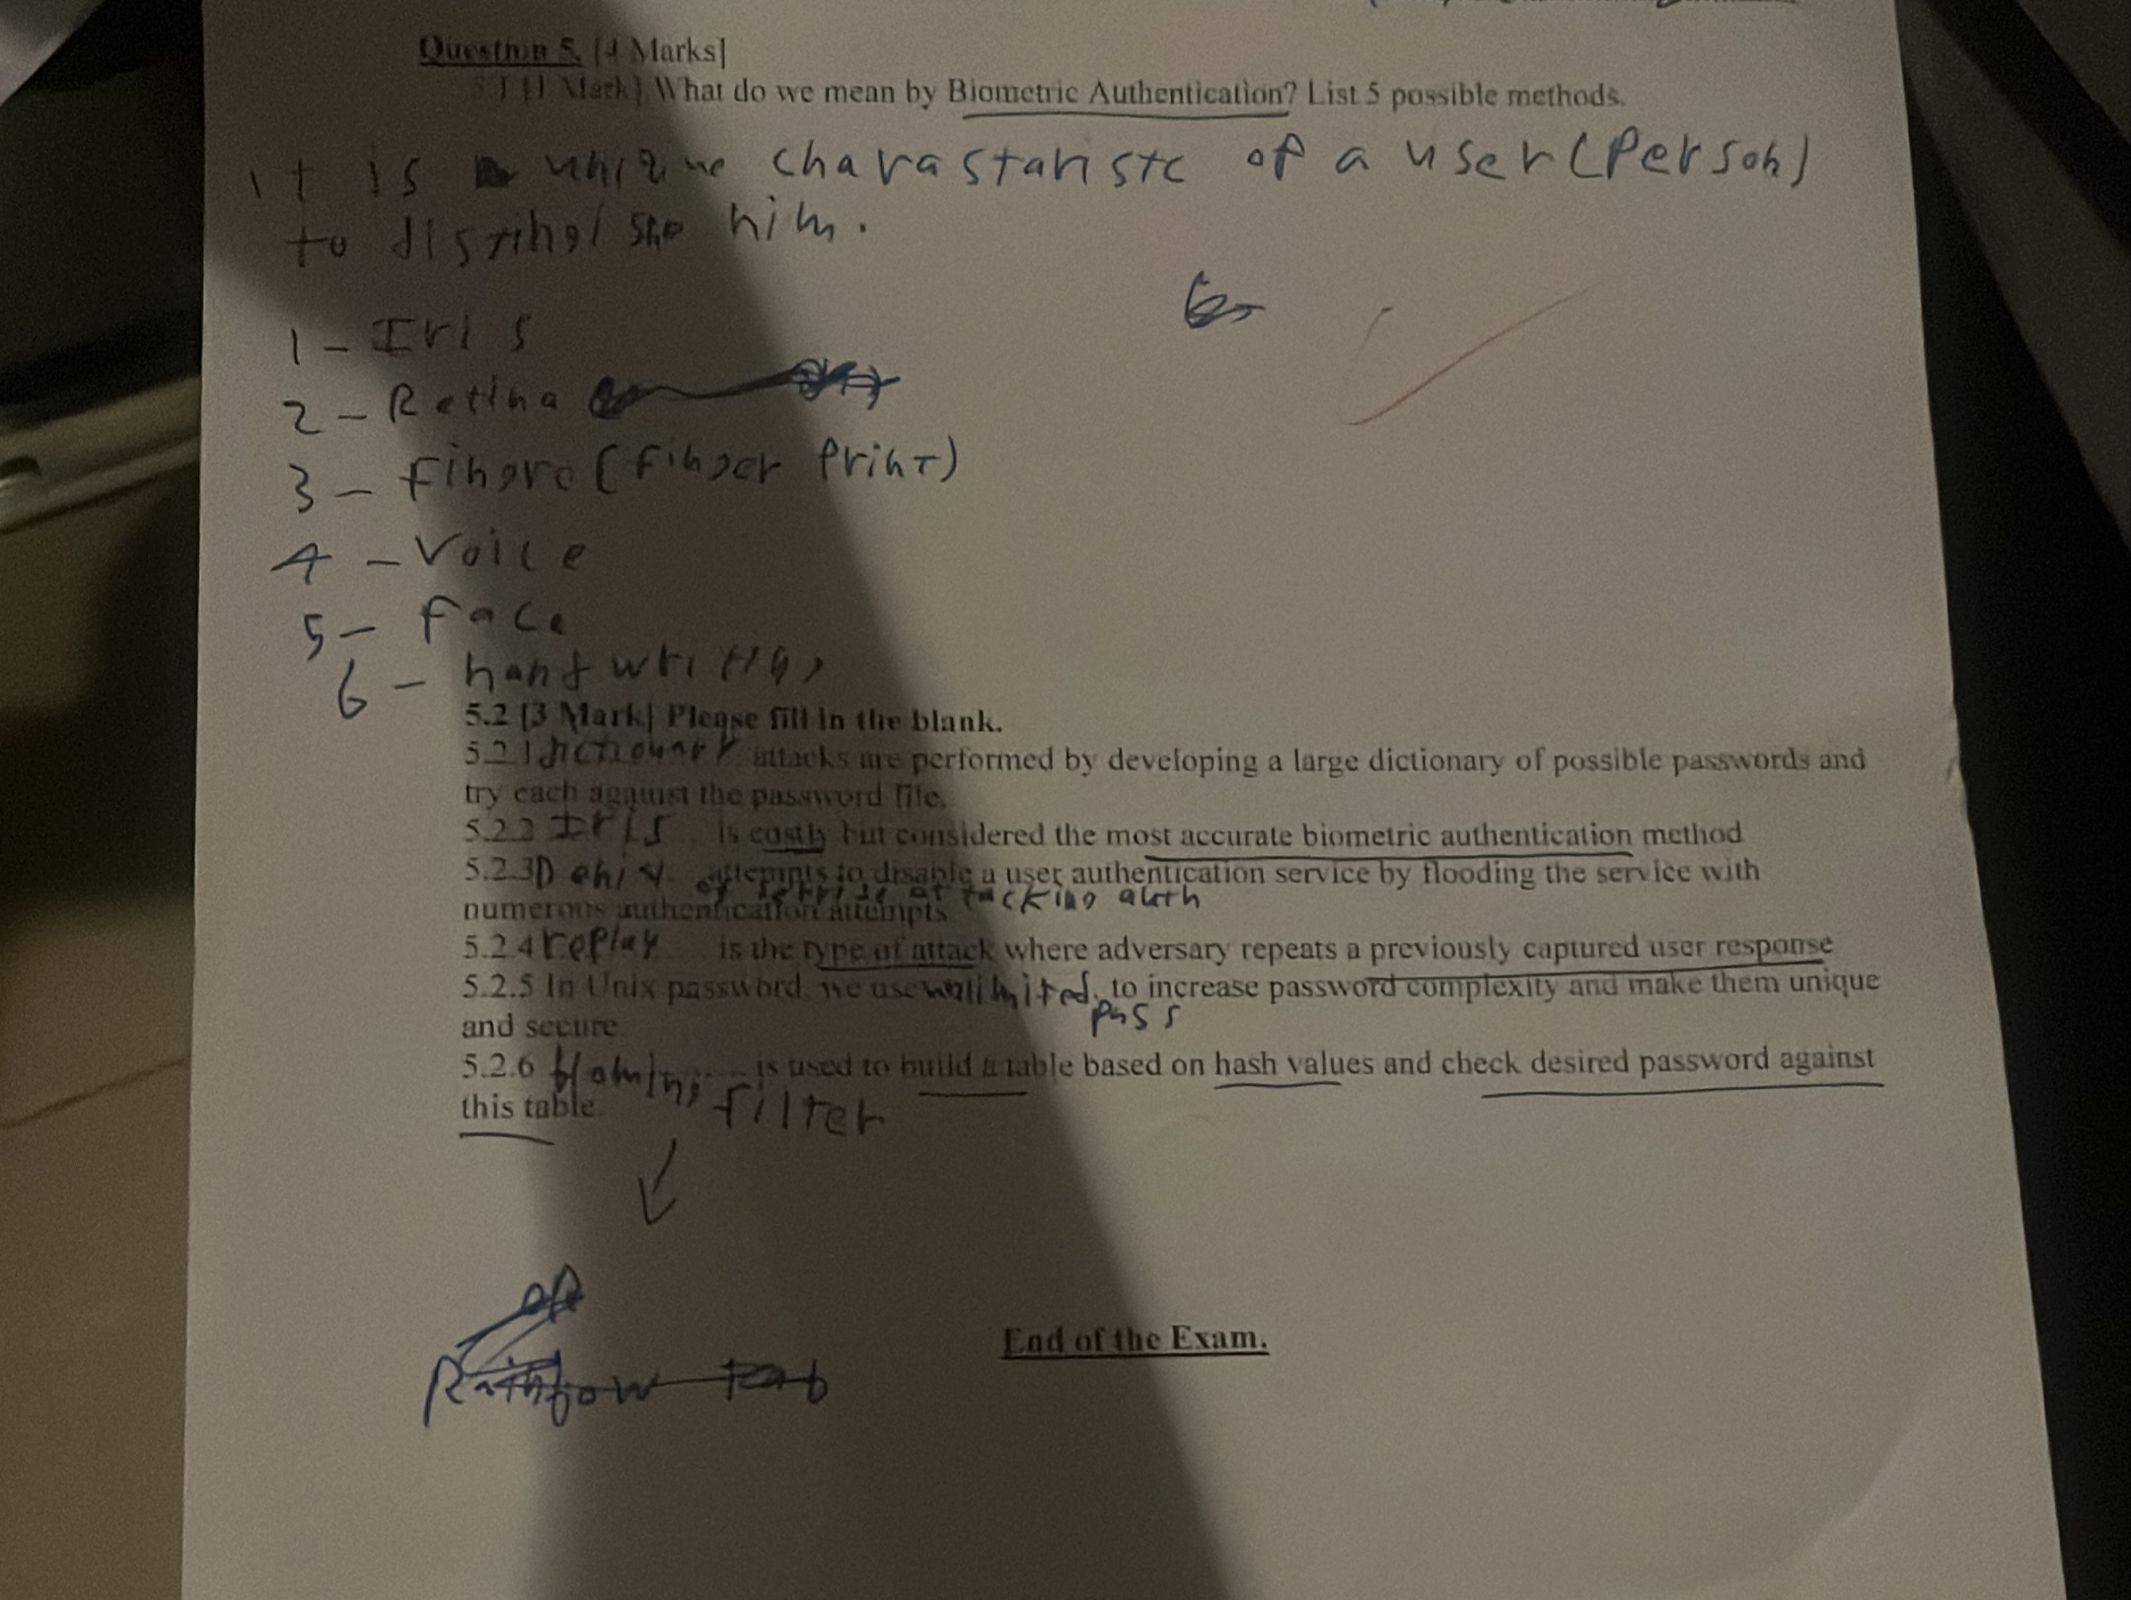 Question 5. [4 Marks]
5.1 [1 Mark] What do we mean by Biometric Authentication? List 5 possible methods.
It is unique charastaristc of a user (Person)
to him.
1 - Iris
2 - Retina
3 - (finger print)
4 - Voice
5 - face
6 -
5.2 [3 Mark] Please fill in the blank.
5.2.1 attacks are performed by developing a large dictionary of possible passwords and
try each against the password file.
5.2.2 Iris is costly but considered the most accurate biometric authentication method
5.2.3 attempts to disable a user authentication service by flooding the service with
of attacking auth
numerous authentication attempts
5.2.4 replay is the type of attack where adversary repeats a previously captured user response
5.2.5 In Unix password, we use to increase password complexity and make them unique
pass
and secure
5.2.6 is used to build a table based on hash values and check desired password against
filter
this table.
Rainbow tab
End of the Exam.